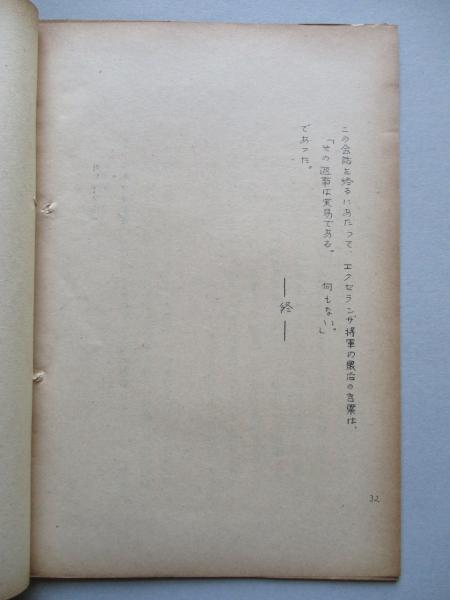 この会話を終るにあたって、エクセランザ将軍の最后の言葉は、
「その返事は実易である。　何もない。」
であった。
―終―
32